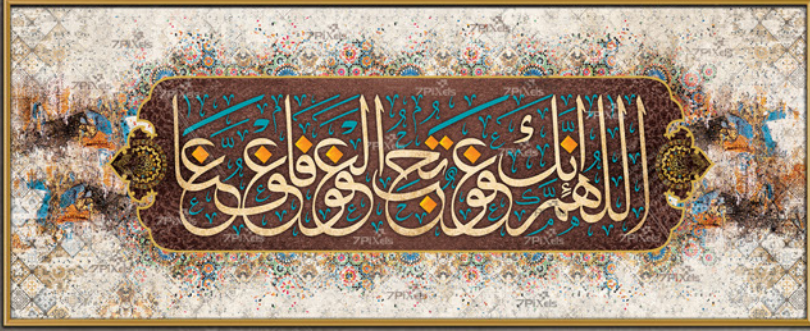 اللهم إنك عفو تحب العفو فاعف عنا
7PiXels